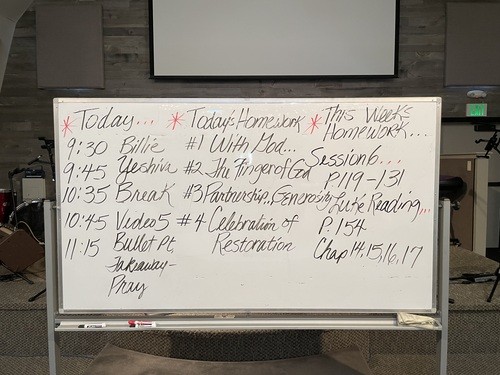 * Today...
9:30 Billie
9:45 Yeshiva
10:35 Break
10:45 Video 5
11:15 Bullet Pt.
Takeaway-
Pray
* Today's Homework
#1 With God...
#2 The Finger of God
#3 Partnership, Generosity
#4 Celebration of
Restoration
* This Week's
Homework....
Session 6...
P. 119-131
Luke Reading...
P. 154
Chap 14, 15, 16, 17